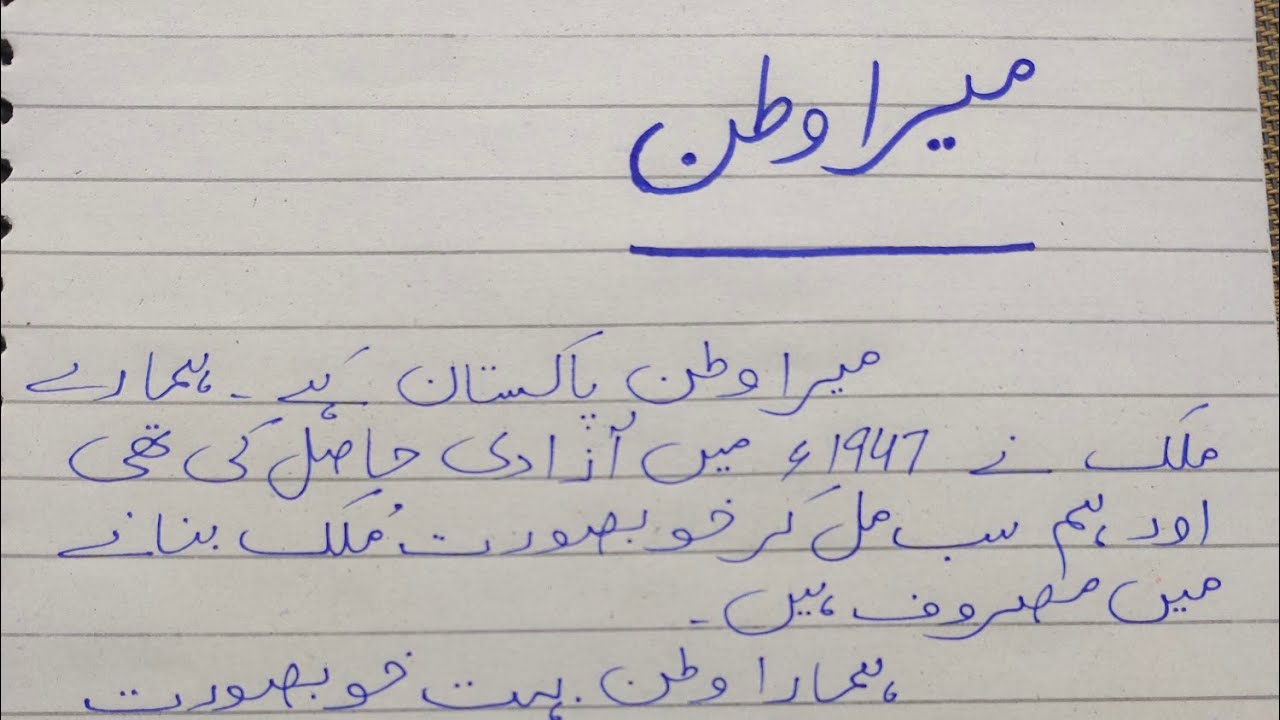 میرا وطن
میرا وطن پاکستان ہے۔ ہمارے
ملک نے 1947ء میں آزادی حاصل کی تھی
اور ہم سب مل کر خوبصورت مُلک بنانے
میں مصروف ہیں۔
ہمارا وطن بہت خوبصورت